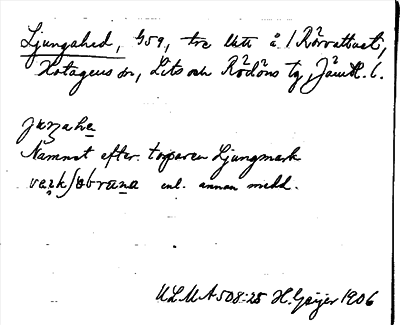 Ljungahed, 459, tre lätt å 1 Rörvattnet,
Hotagens sn, Lits och Rödöns tg, Jämtl. l.
juŋahe
Namnet efter torparen Ljungmark
enl. annan medd.
ULMA 508:25 H. Geijer 1906